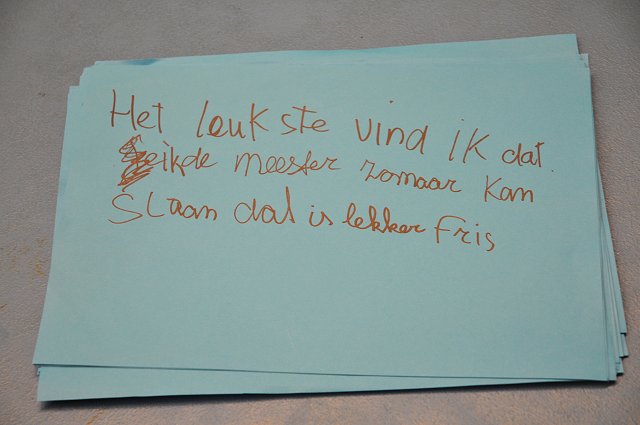 Het leukste vind ik dat
ik de meester zomaar kan
slaan dat is lekker fris